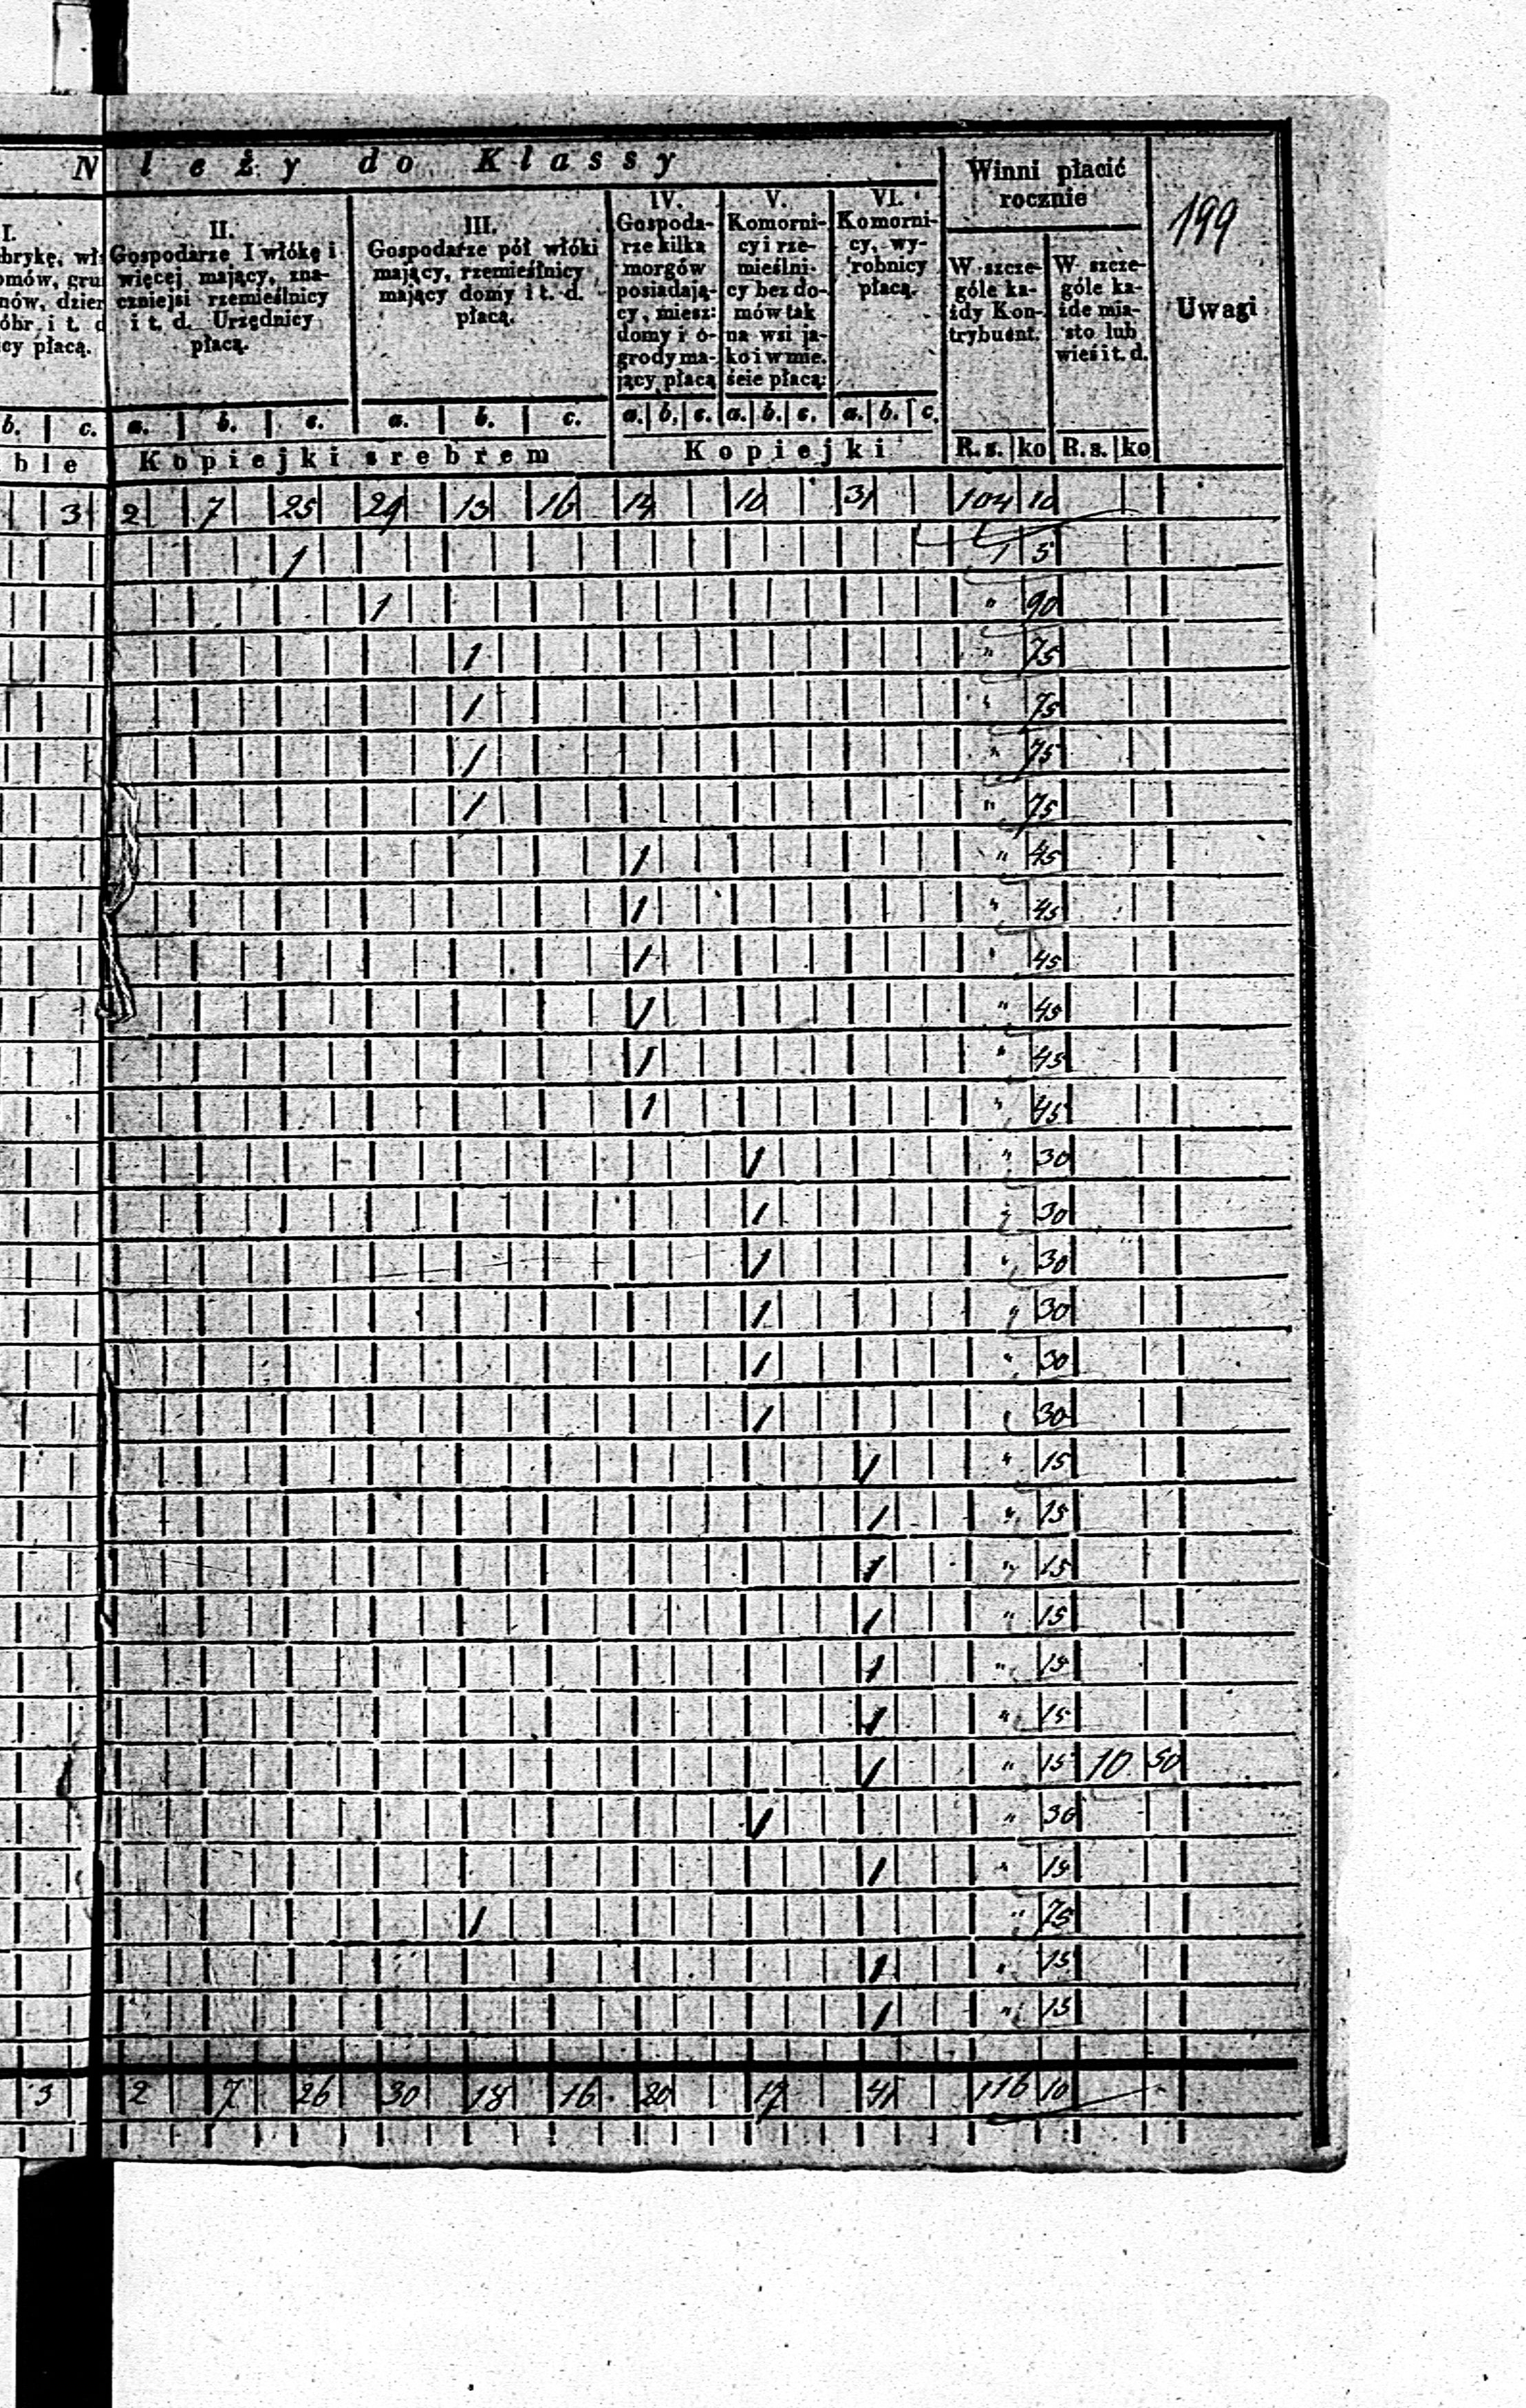 N leży do Klassy
Winni płacić rocznie
199
Uwagi
I.
brykę, wł
omów, gru
nów, dzier
óbr i t. d
cy płacą.
II.
Gospodarze I włókę i
więcej mający, zna-
czniejsi rzemieślnicy
i t. d. Urzędnicy
płacą.
III.
Gospodarze pół włóki
mający, rzemieślnicy
mający domy i t. d.
płacą.
IV.
Gospoda-
rze kilka
morgów
posiadają-
cy, miesz:
domy i o-
grody ma-
jący płacą
V.
Komorni-
cy i rze-
mieślni-
cy bez do-
mów tak
na wsi ja-
ko i w mie-
ście płacą:
VI.
Komorni-
cy, wy-
robnicy
płacą.
W szcze-
góle ka-
żdy Kon-
trybuent.
W szcze-
góle ka-
żde mia-
sto lub
wieś i t. d.
b. c. a. b. c. a. b. c. a. b. c. a. b. c. a. b. c.
ble Kopiejki srebrem Kopiejki R. s. ko R. s. ko
3 2 7 25 29 13 16 14 10 31 104 10
1 1 5
1 " 90
1 " 75
1 " 75
1 " 75
1 " 75
1 " 45
1 " 45
1 " 45
1 " 45
1 " 45
1 " 45
1 " 30
1 " 30
1 " 30
1 " 30
1 " 30
1 " 30
1 " 15
1 " 15
1 " 15
1 " 15
1 " 15
1 " 15
1 " 15 10 50
1 " 30
1 " 15
1 " 75
1 " 15
1 " 15
3 2 7 26 30 18 16 20 17 41 116 10